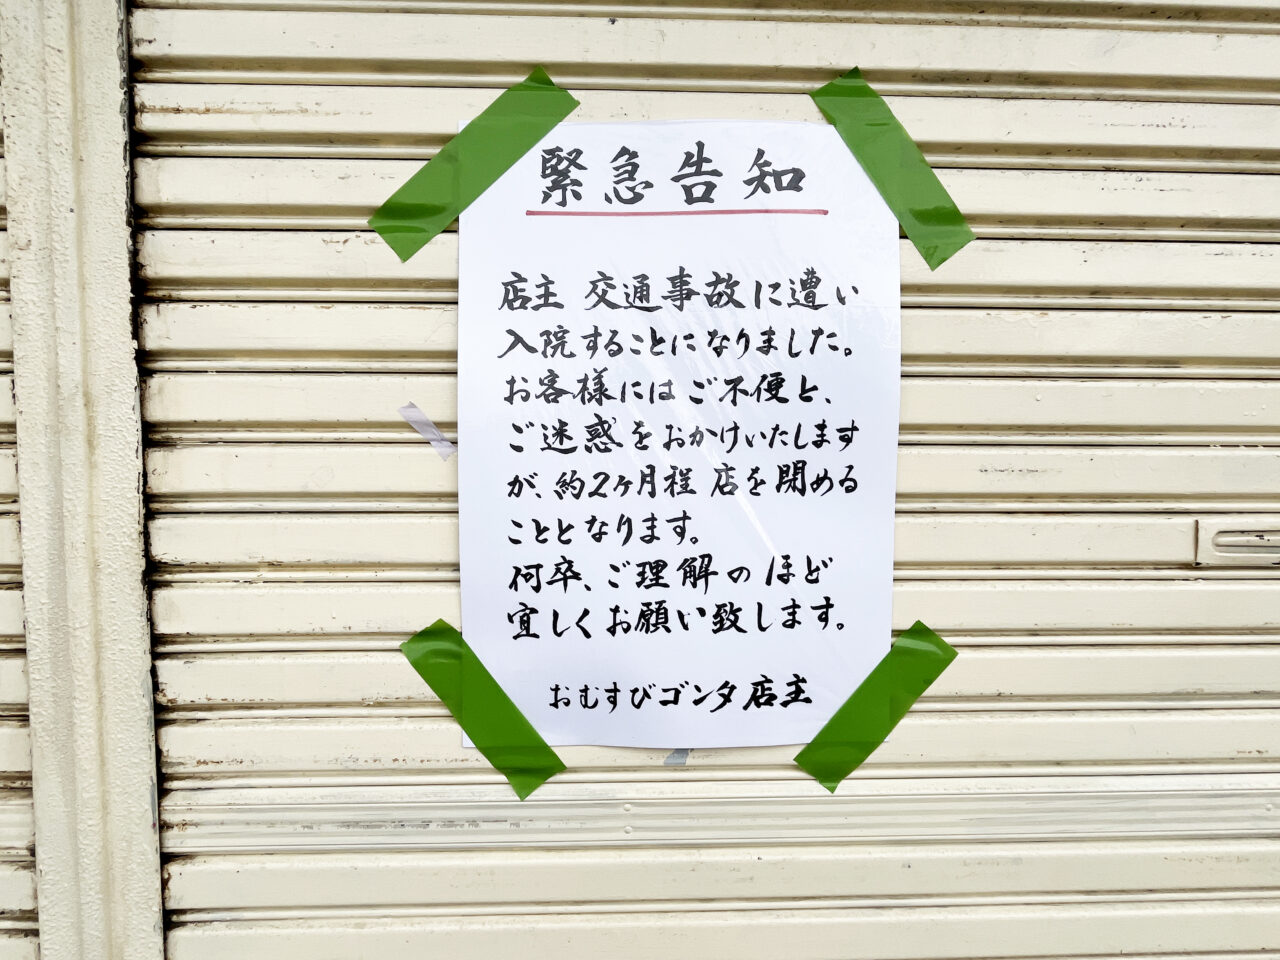 緊急告知
店主 交通事故に遭い
入院することになりました。
お客様にはご不便と、
ご迷惑をおかけいたします
が、約2ヶ月程 店を閉める
こととなります。
何卒、ご理解のほど
宜しくお願い致します。
おむすびゴンタ店主